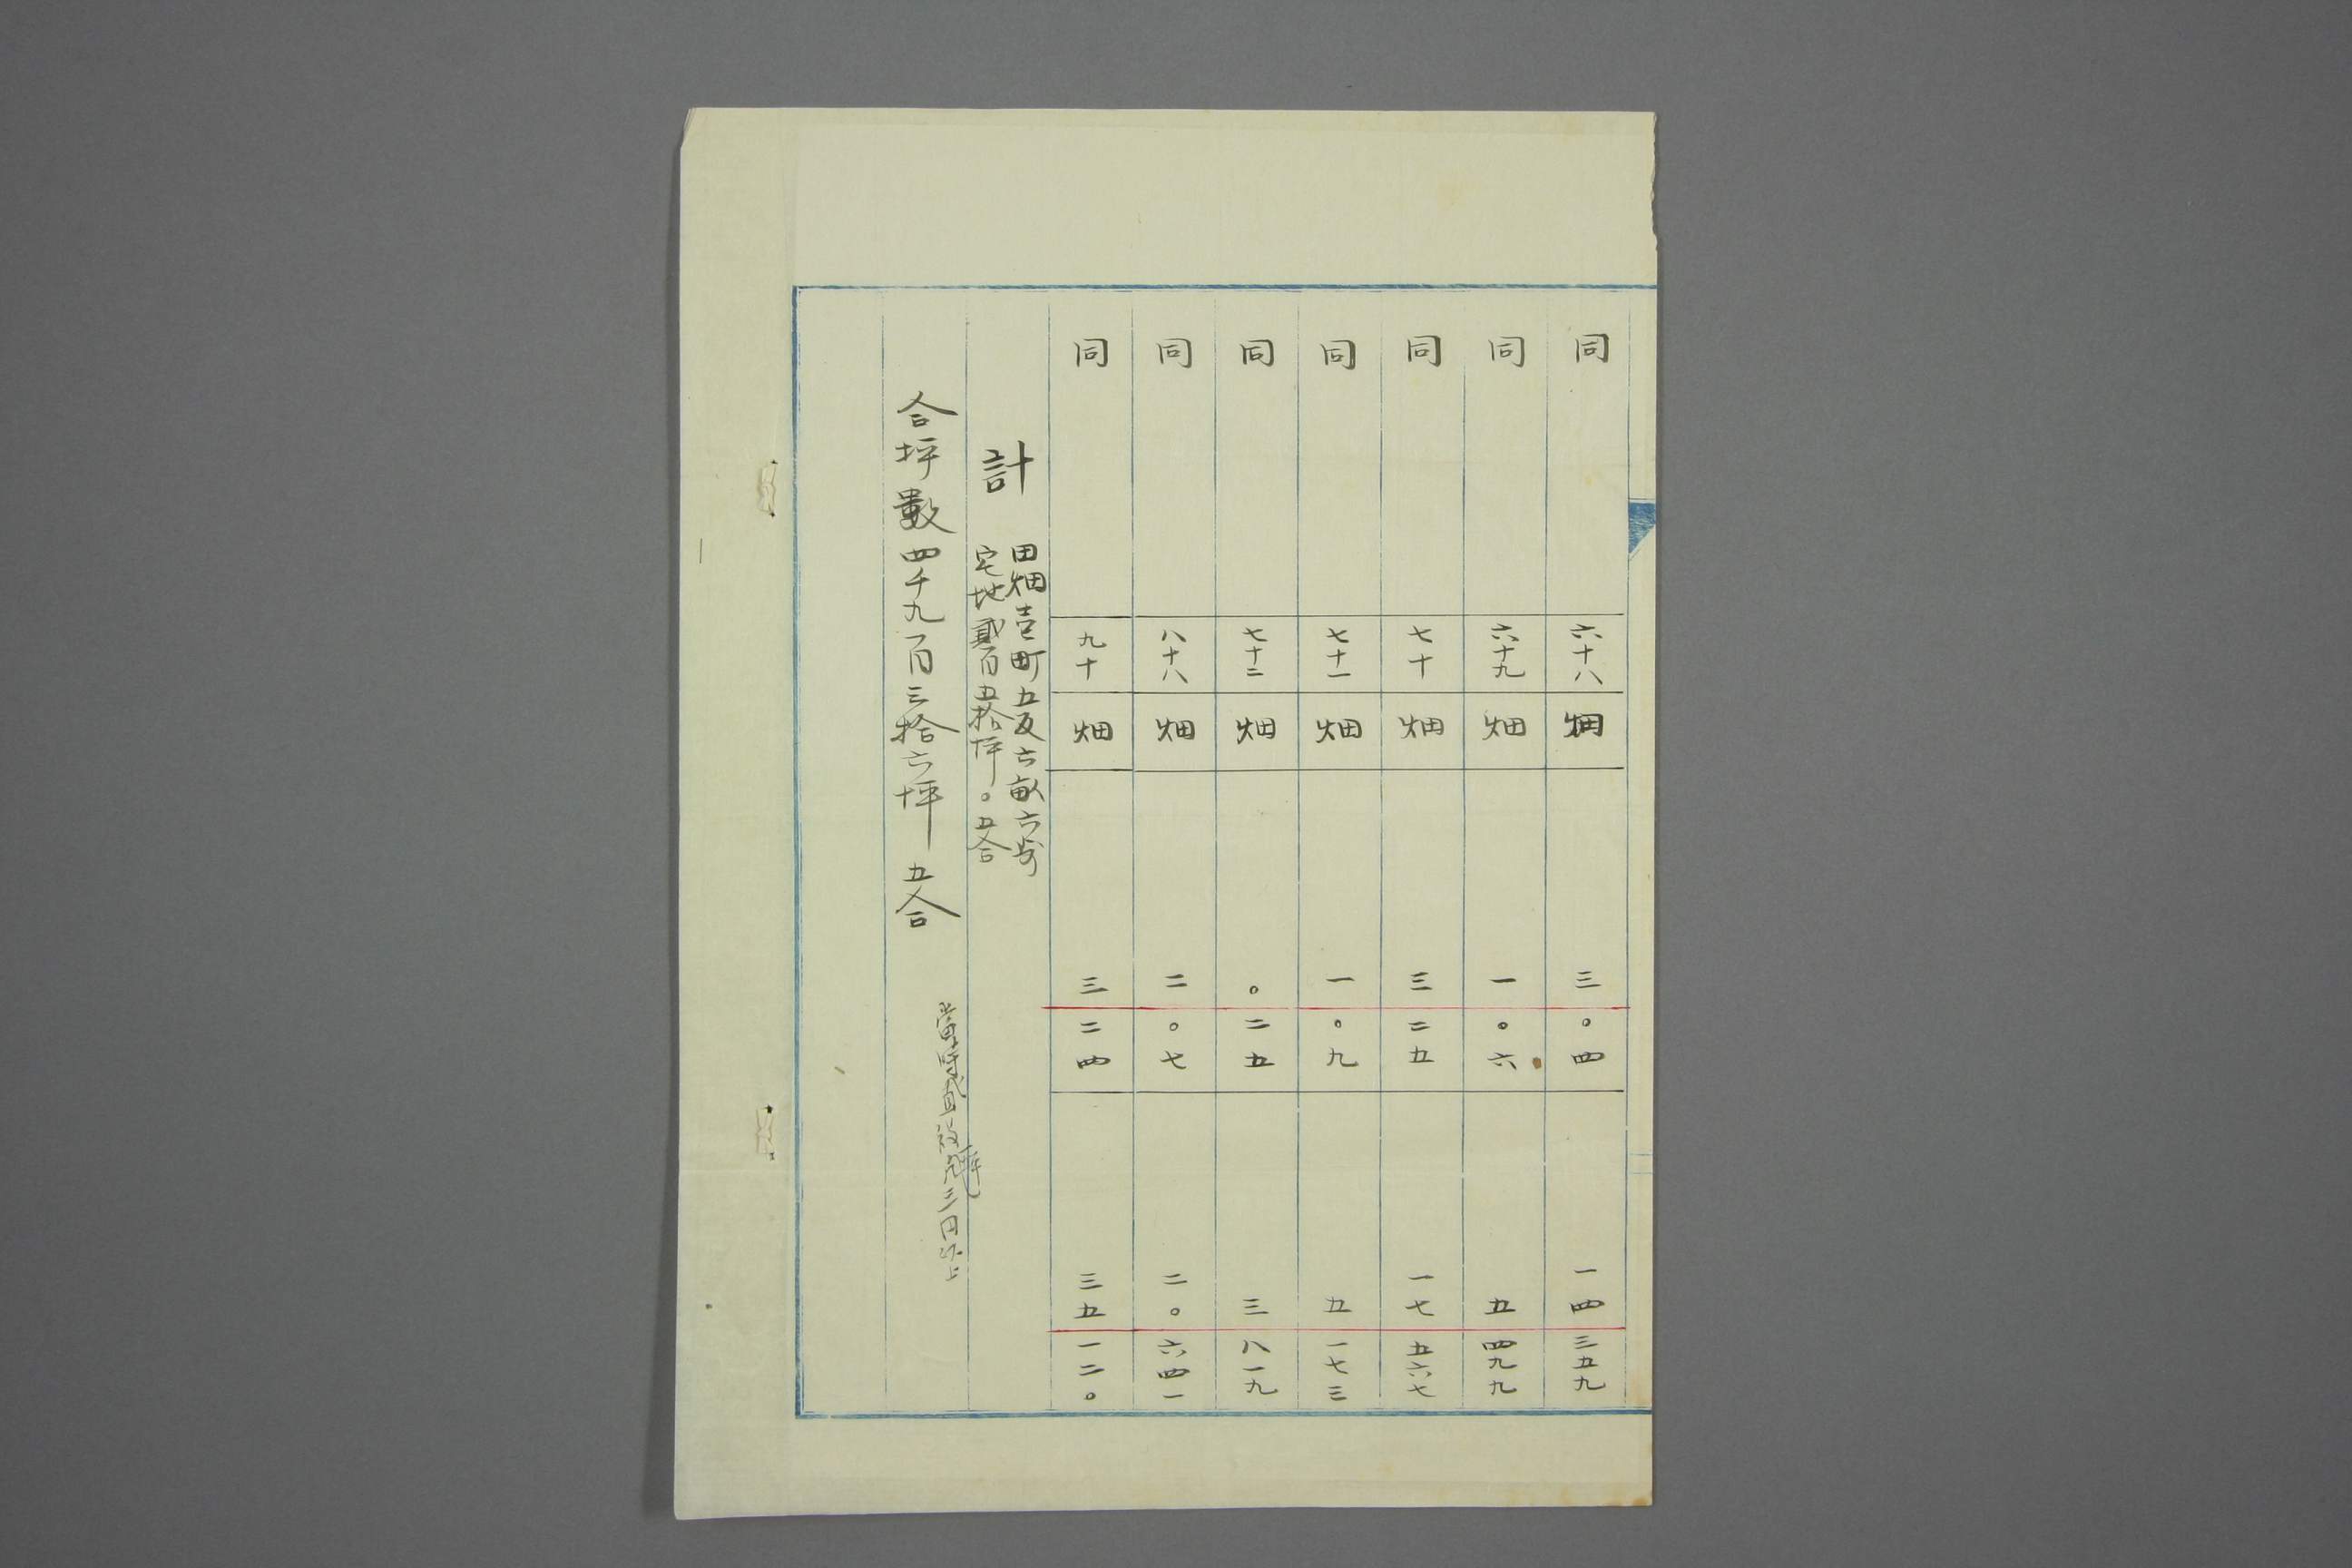 同 六十八 畑 三 〇四 一四 三五九
同 六十九 畑 一 〇六 五 四九九
同 七十 畑 三 二五 一七 五六七
同 七十一 畑 一 〇九 五 一七三
同 七十二 畑 〇 二五 三 八一九
同 八十八 畑 二 〇七 二〇 六四一
同 九十 畑 三 二四 三五 一二〇
計
田畑壹町五反六畝六歩
宅地貳百五拾坪〇五合
合坪數四千九百三拾六坪 五合
三円以上